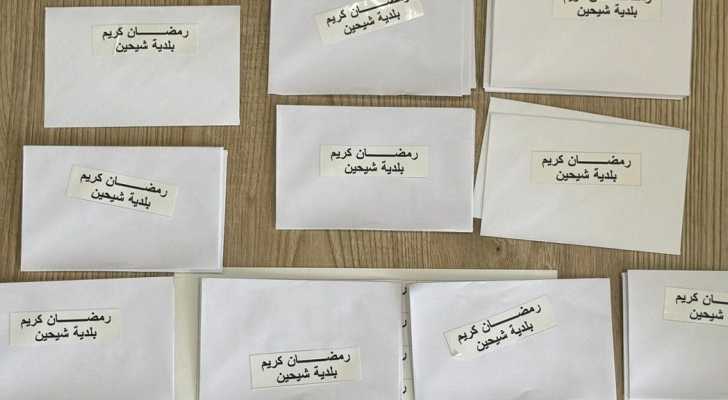 رمضـــــان كريم
بلدية شيحين
رمضـــــان كريم
بلدية شيحين
رمضـــــان كريم
بلدية شيحين
رمضـــــان كريم
بلدية شيحين
رمضـــــان كريم
بلدية شيحين
رمضـــــان كريم
بلدية شيحين
رمضـــــان كريم
بلدية شيحين
رمضـــــان كريم
بلدية شيحين
رمضـــــان كريم
بلدية شيحين
رمضـــــان كريم
بلدية شيحين